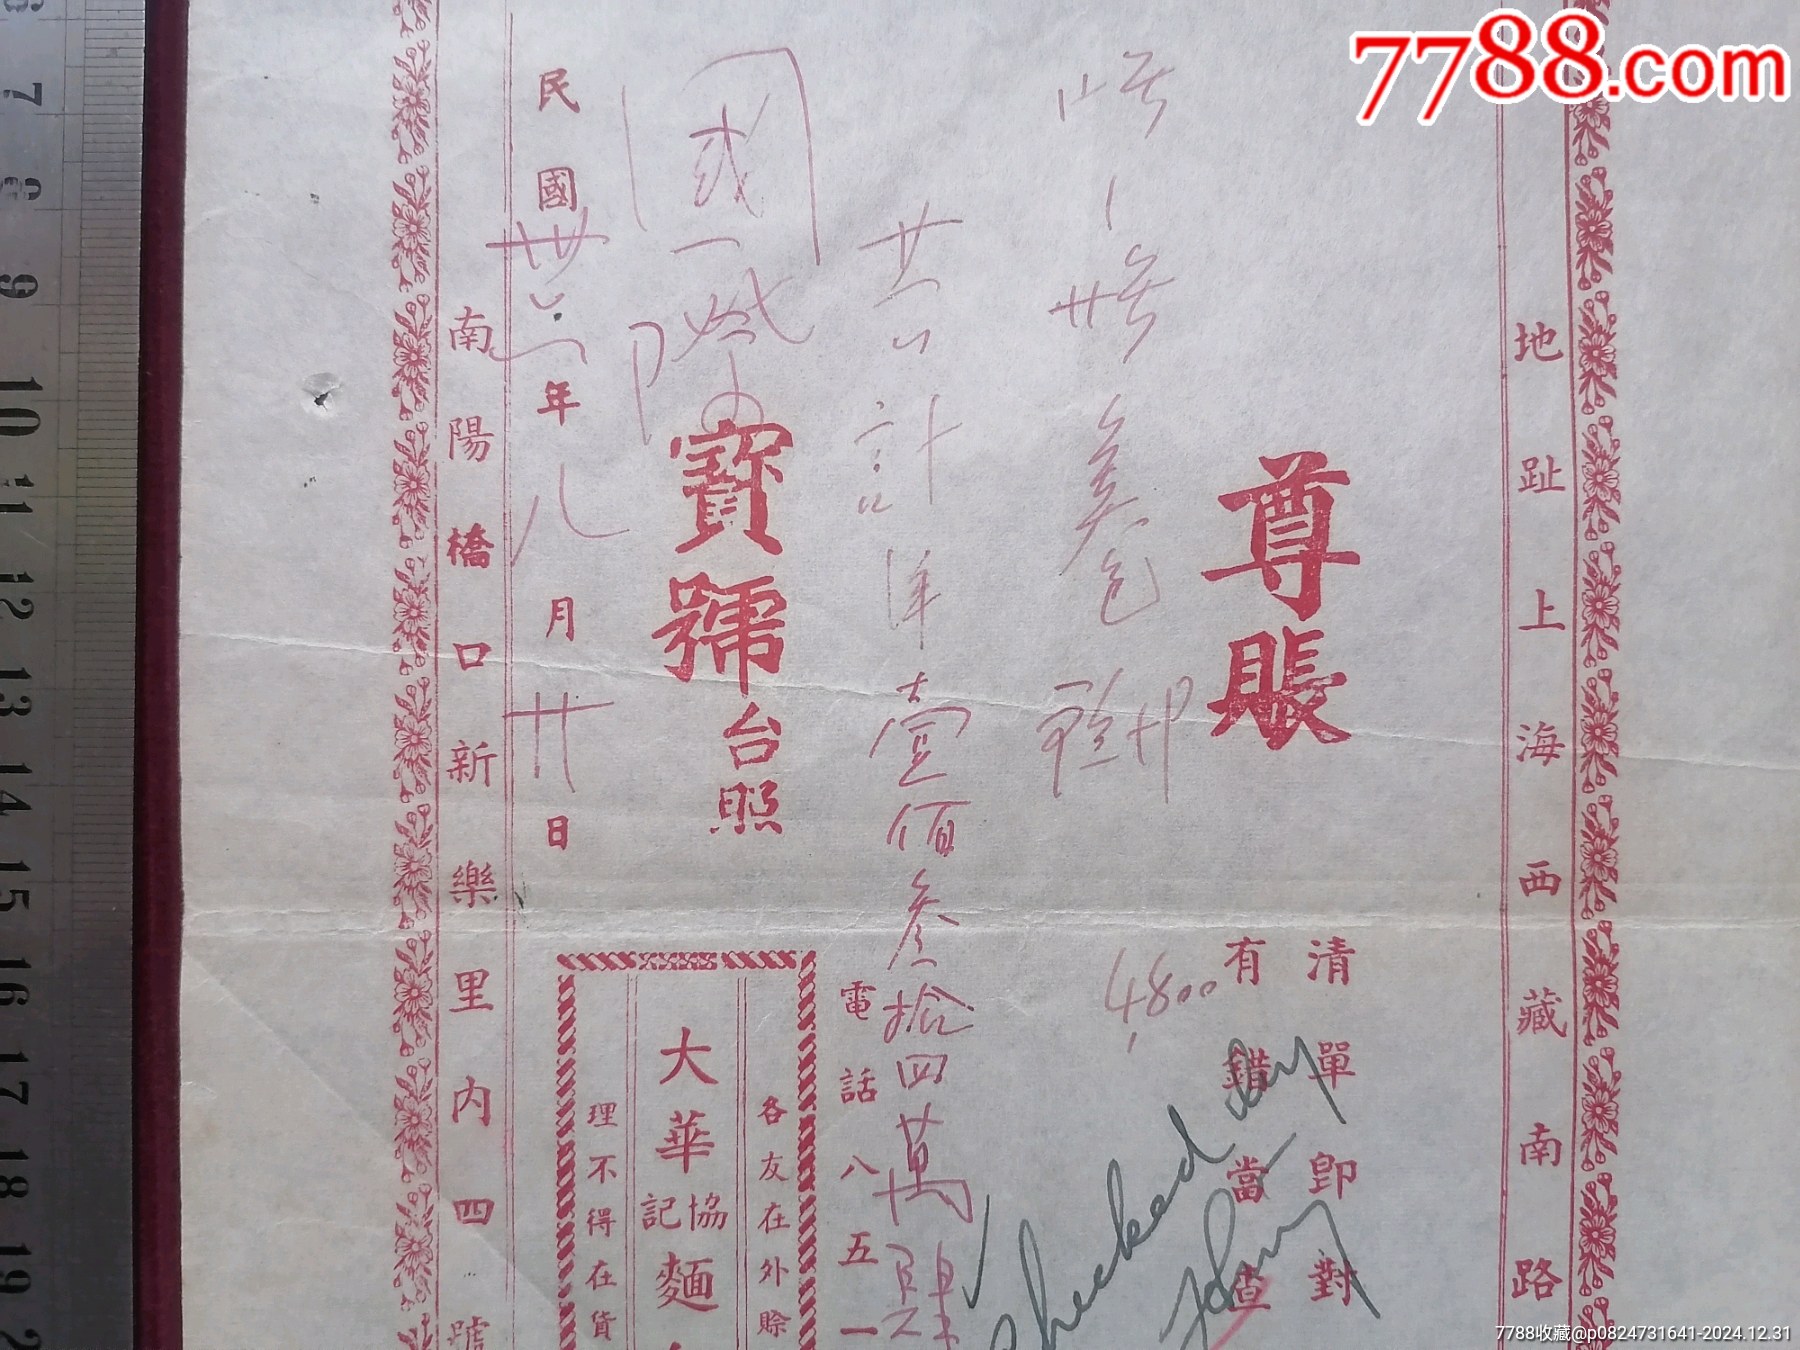 7788.com
地趾上海西藏南路
清單即對
有錯當查
尊賬
4,800
Checked by
共計洋壹佰叁拾四萬肆
電話八五一
國際
寶號台照
各友在外賒
大華協記麵
理不得在貨
民國卅六年八月廿日
南陽橋口新樂里内四號
6
7
8
9
10
11
12
13
14
15
16
17
18
19
7788收藏@p0824731641-2024.12.31